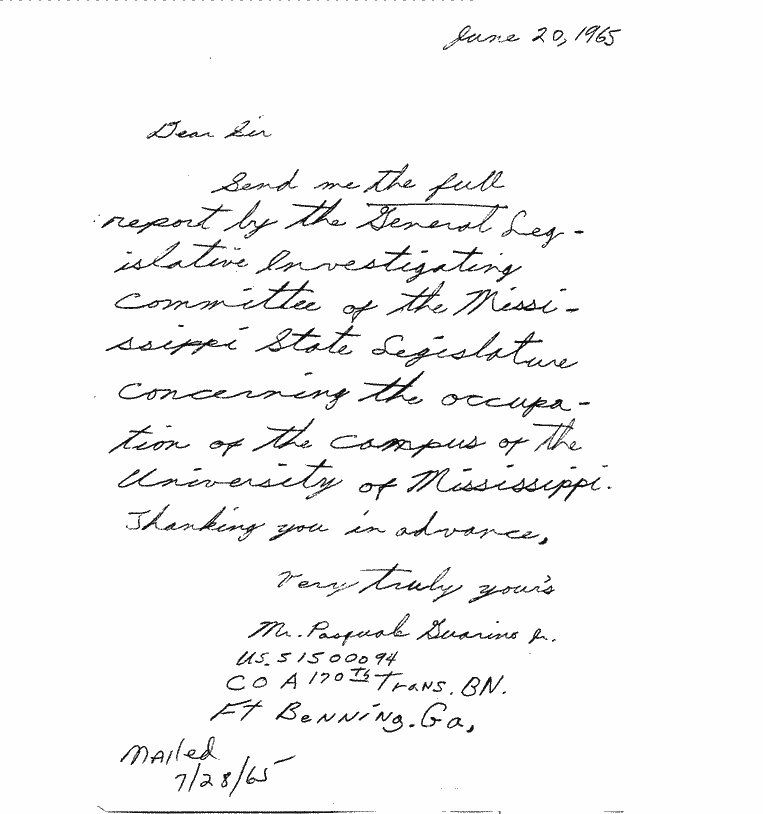 June 20, 1965
Dear Sir
Send me the full
report by the General Leg-
islative Investigating
Committee of the Missi-
ssippi State Legislature
concerning the occupa-
tion of the campus of the
University of Mississippi.
Thanking you in advance,
Very truly your's
Mr. Pasquale Guarino Jr.
US. 51500094
CO A 170th Trans. BN.
Ft Benning. Ga,
Mailed
7/28/65